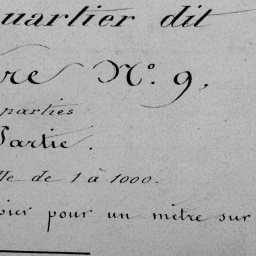 uartier dit
re N.o 9,
parties
Partie.
lle de 1 à 1000.
pier pour un mètre sur